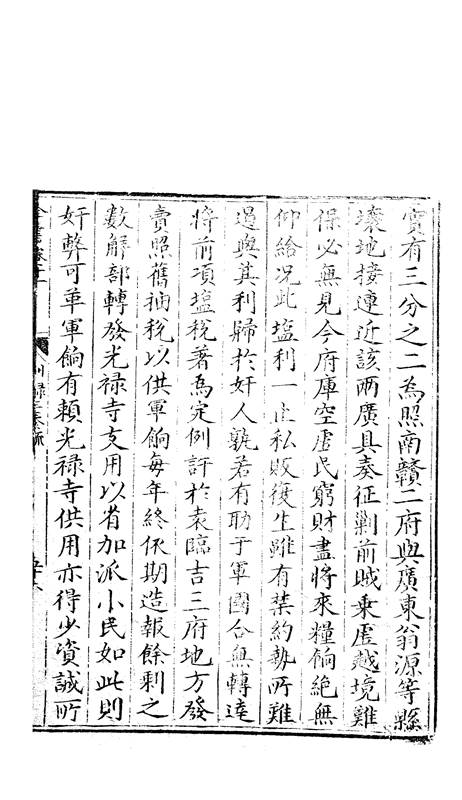 實有三分之二為照南贛二府與廣東翁源等縣
壤地接連近該兩廣具奏征剿前賊乘虛越境難
保必無見今府庫空虛民窮財盡將來糧餉絕無
仰給况此塩利一止私販復生雖有禁約勢所難
遏與其利歸於奸人孰若有助于軍國合無轉達
將前項塩稅著為定例許於袁臨吉三府地方發
賣照舊抽稅以供軍餉每年終依期造報餘剩之
數解部轉發光禄寺支用以省加派小民如此則
奸弊可革軍餉有賴光禄寺供用亦得少資誠所